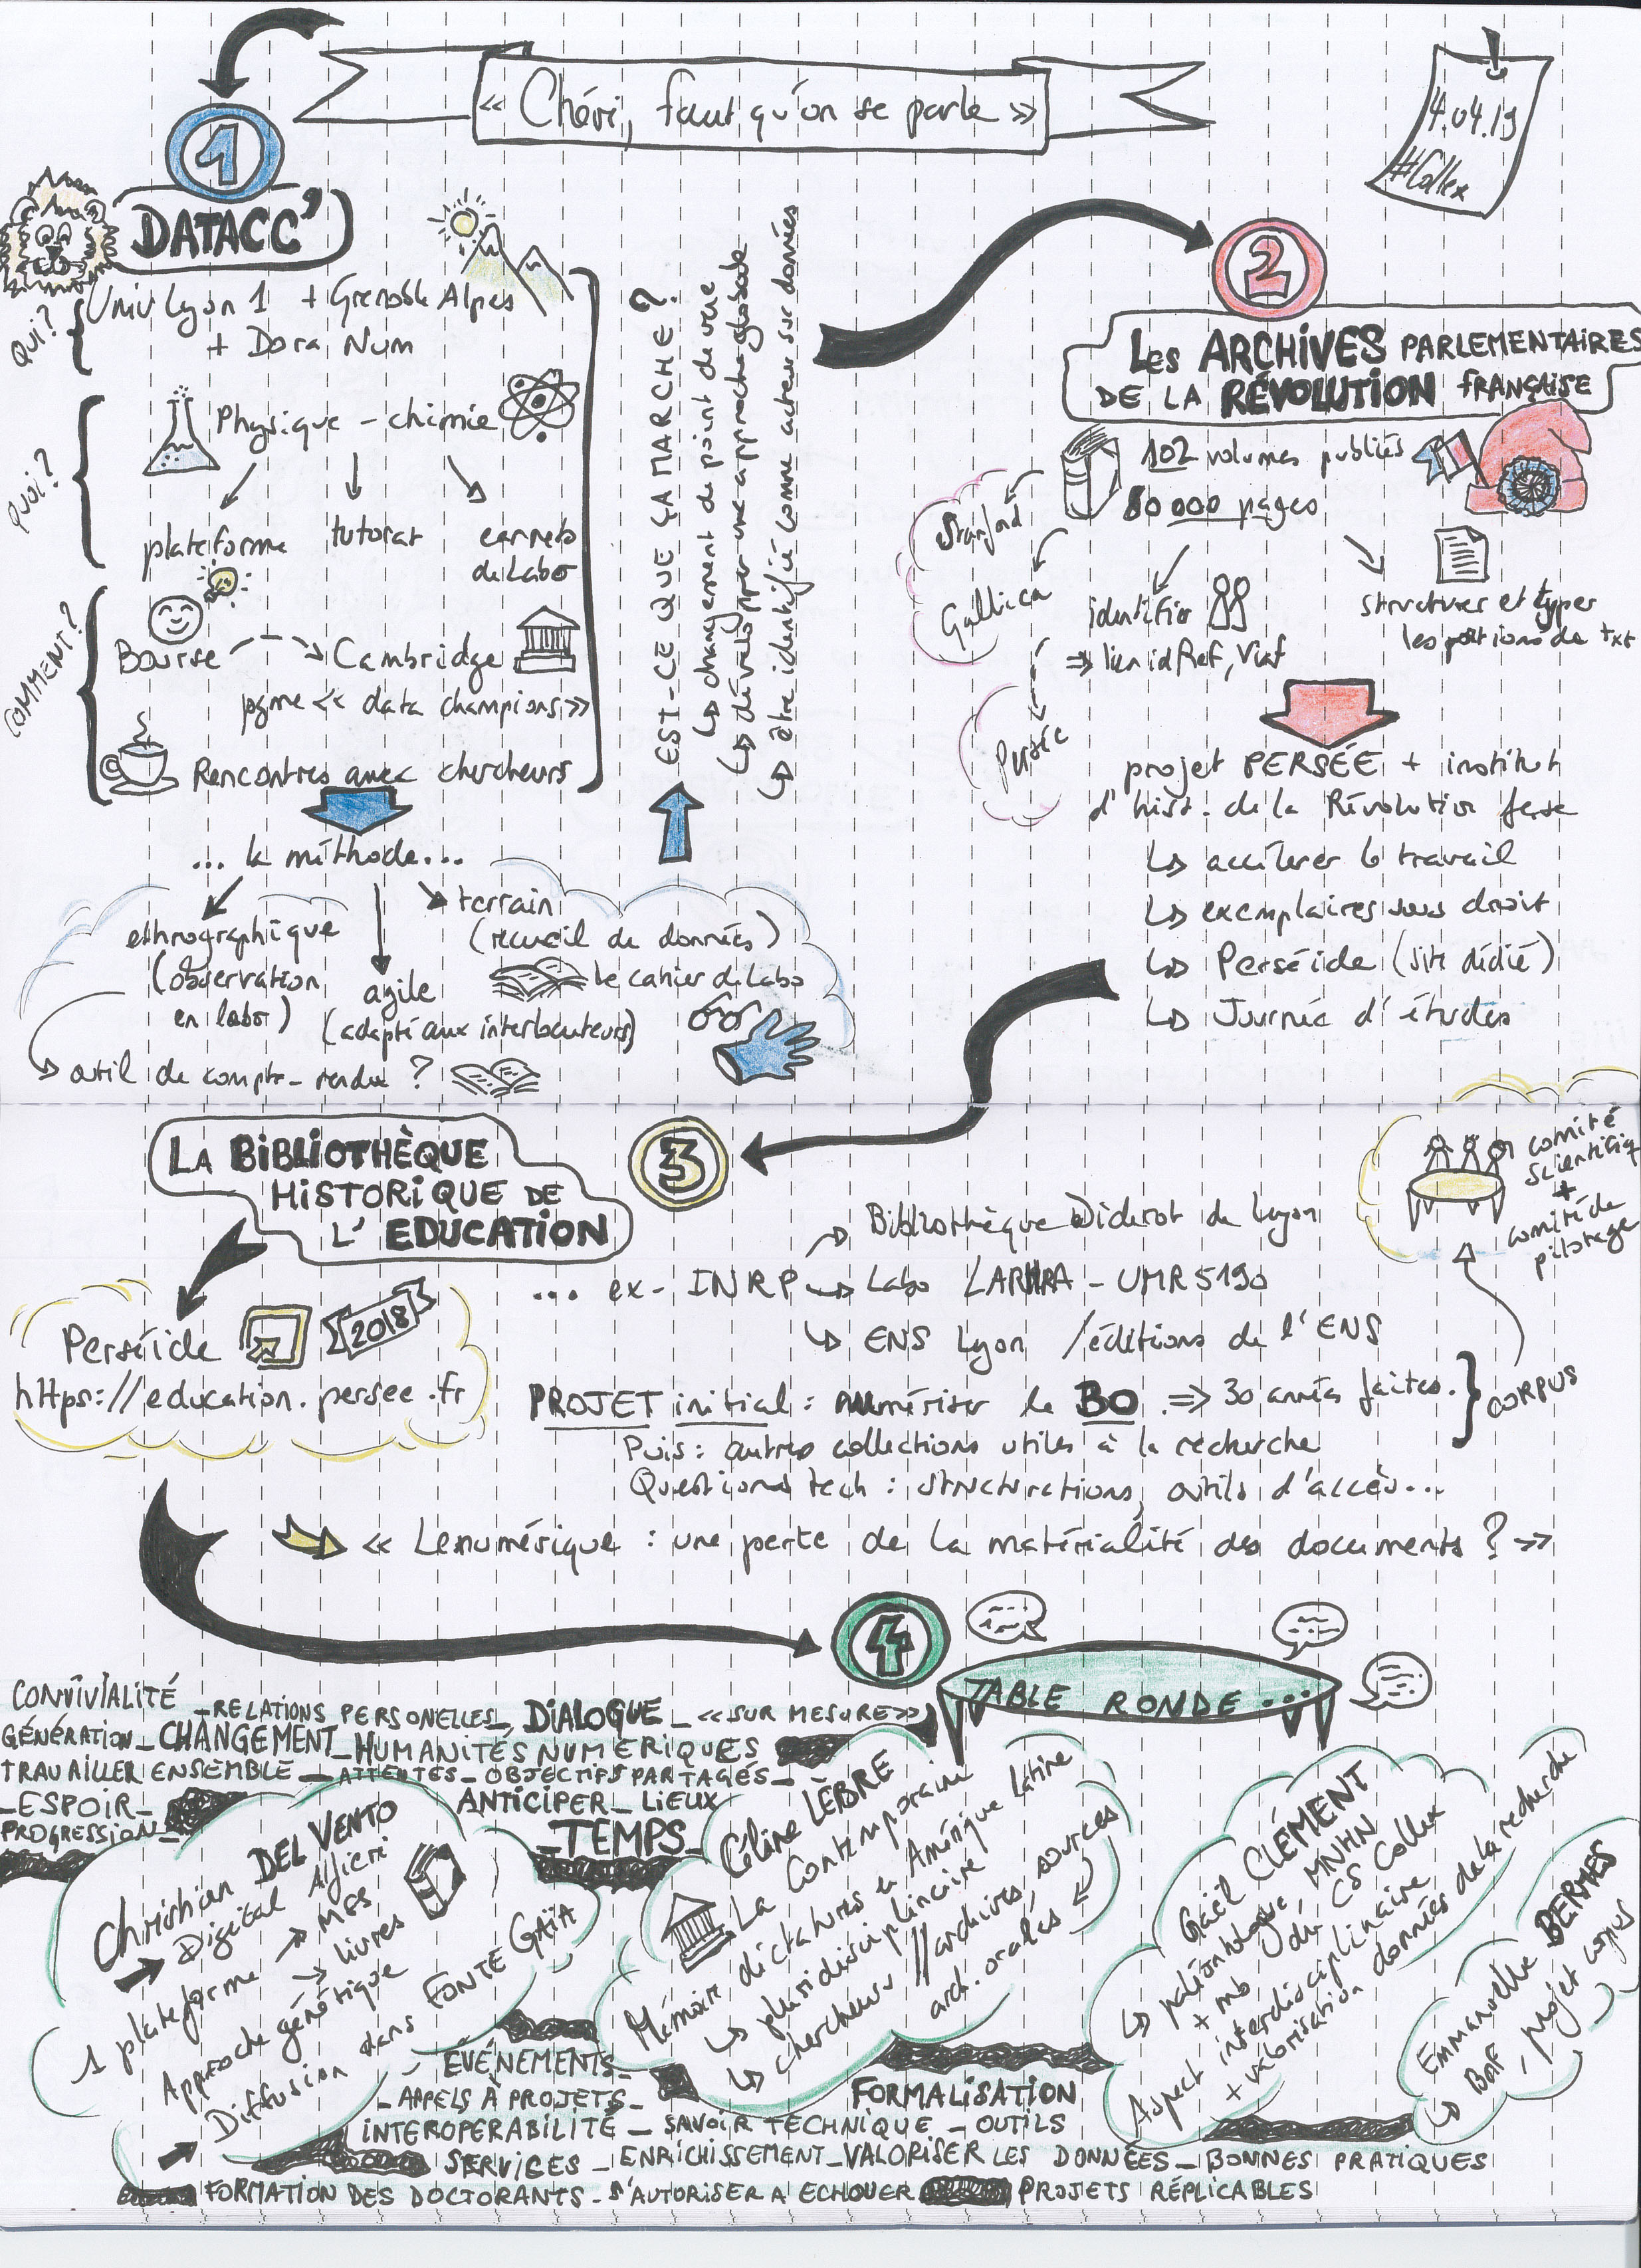 « Chéri, faut qu'on se parle »
4.04.19
#Collex
1
DATACC'
Qui?
Univ Lyon 1 + Grenoble Alpes
+ Dora Num
Quoi?
Physique - chimie
plateforme
tutorat
carnets
de labo
COMMENT?
Bourse
Cambridge
pgme « data champions »
Rencontres avec chercheurs
... la méthode...
ethnographique
(observation
en labo)
agile
(adapté aux interlocuteurs)
terrain
(recueil de données)
le cahier de labo
outil de compte-rendu ?
EST-CE QUE ÇA MARCHE ?
↳ changement de point de vue
↳ développer une approche globale
↳ être identifié comme acteur sur données
2
Les ARCHIVES PARLEMENTAIRES
DE LA RÉVOLUTION FRANÇAISE
102 volumes publiés
80 000 pages
Stanford
Gallica
Persée
identifier
⇒ lien idRef, Viaf
structurer et typer
les portions de txt
projet PERSÉE + institut
d'hist. de la Révolution fçse
↳ accélerer le travail
↳ exemplaires sous droit
↳ Perséide (site dédié)
↳ Journée d'études
3
LA BIBLIOTHÈQUE
HISTORIQUE DE
L'EDUCATION
Perséide
2018
https://education.persee.fr
... ex- INRP
→ Bibliothèque Diderot de Lyon
↳ Labo LARHRA - UMR 5190
↳ ENS Lyon / éditions de l'ENS
comité
scientifiq
+
comité de
pilotage
PROJET initial : numériser le BO ⇒ 30 années faites.
Puis : autres collections utiles à la recherche
Questions tech : structurations, outils d'accès...
CORPUS
« Le numérique : une perte de la matérialité des documents ? »
4
TABLE RONDE...
CONVIVIALITÉ _ RELATIONS PERSONELLES, DIALOGUE _ «SUR MESURE»
GÉNÉRATION _ CHANGEMENT _ HUMANITÉS NUMERIQUES
TRAVAILLER ENSEMBLE _ ATTENTES _ OBJECTIFS PARTAGÉS _
_ ESPOIR _
ANTICIPER _ LIEUX
PROGRESSION _
_ TEMPS _
Christian DEL VENTO
Digital Alfieri
1 plateforme → MSS
→ livres
Approche génétique
Diffusion dans FONTE GAÏA
Céline LÈBRE
La Contemporaine
Mémoire dictatures en Amérique Latine
↳ plusidisciplinaire
↳ chercheurs // archives, sources
arch. orales
Gaël CLÉMENT
↳ paléontologue, MNHN
+ mb du CS Collex
Aspect interdisciplinaire
+ valorisation données de la recherche
Emmanuelle BERMES
↳ BnF, projet corpus
EVÉNEMENTS _
_ APPELS À PROJETS _
FORMALISATION
INTEROPERABILITÉ _ SAVOIR TECHNIQUE _ OUTILS
SERVICES _ ENRICHISSEMENT _ VALORISER LES DONNÉES _ BONNES PRATIQUES
FORMATION DES DOCTORANTS _ S'AUTORISER A ECHOUER
PROJETS RÉPLICABLES